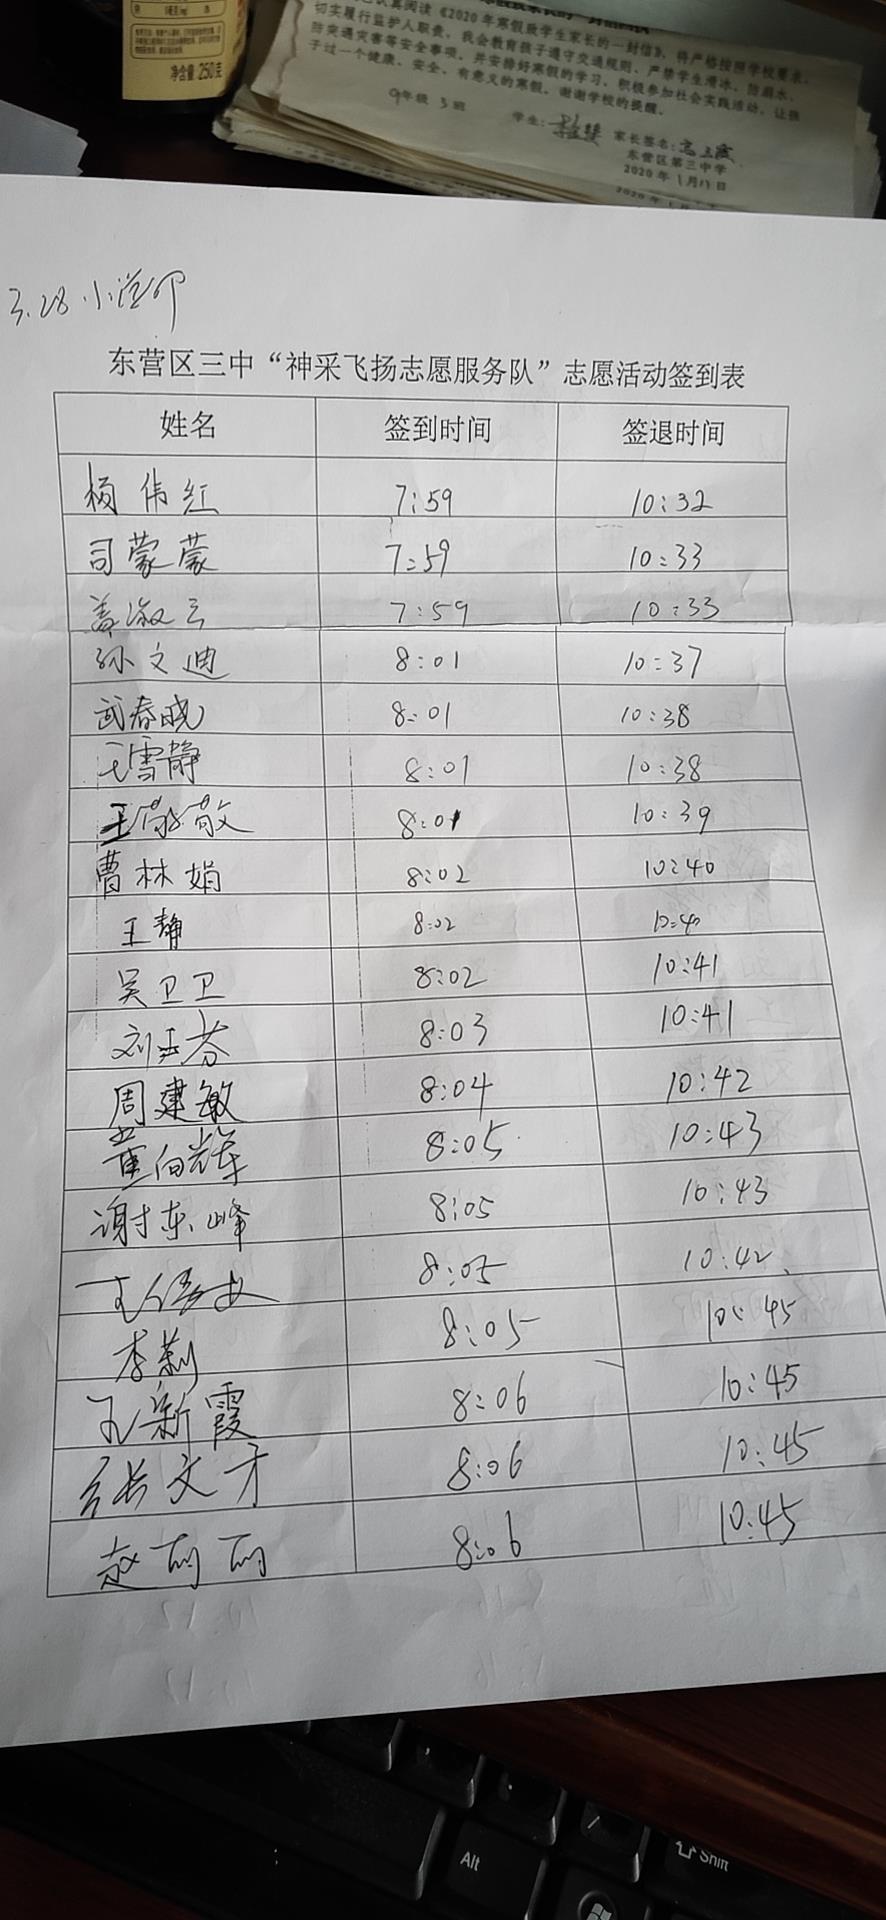 净含量:250克
切实履行监护人职责。我会教育孩子遵守交通规则、严禁学生滑冰、防溺水、
防交通灾害等安全事项。并安排好寒假的学习,积极参加社会实践活动,让孩
子过一个健康、安全、有意义的寒假。谢谢学校的提醒。
9年级 3班
学生:
家长签名:
东营区第三中学
2020年1月11日
3.28
东营区三中“神采飞扬志愿服务队”志愿活动签到表
姓名 签到时间 签退时间
杨伟红 7:59 10:32
司蒙蒙 7:59 10:33
盖淑云 7:59 10:33
孙文迪 8:01 10:37
武春晓 8:01 10:38
王雪静 8:01 10:38
王敬敬 8:01 10:39
曹林娟 8:02 10:40
王静 8:02 10:40
吴卫卫 8:02 10:41
刘玉芬 8:03 10:41
周建敏 8:04 10:42
董向辉 8:05 10:43
谢东峰 8:05 10:43
8:05 10:42
李莉 8:05 10:45
孔新霞 8:06 10:45
张文才 8:06 10:45
赵丽丽 8:06 10:45
Alt
Shift